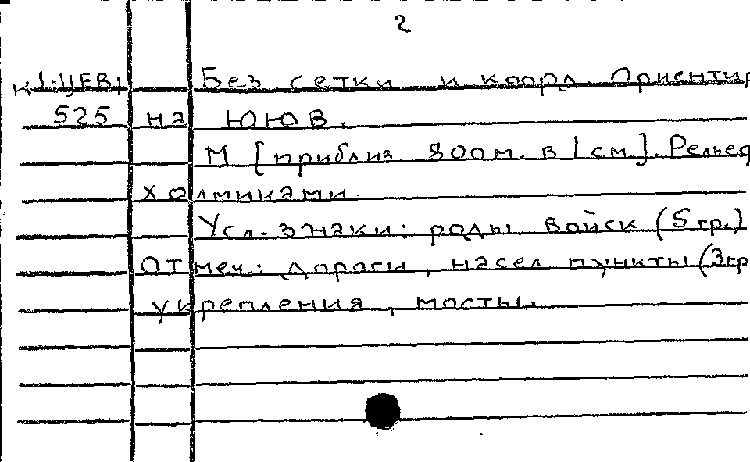 2
К1:ЦЕВ1 Без сетки и коорд. Ориентир
525 на ЮЮВ.
М [приблиз 800м. в 1 см.]. Рельеф
холмиками
Усл. знаки: роды войск (5 гр.)
Отмеч.: дороги, насел пункты (3гр
укрепления, мосты.